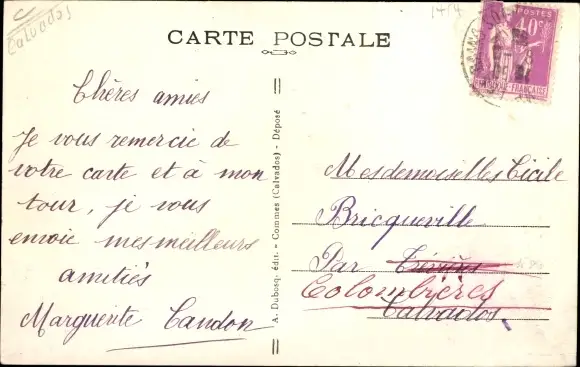 Calvados
CARTE POSTALE
POSTES
40c
Chères amies
Je vous remercie de
votre carte et à mon
tour, je vous
envoie mes meilleurs
amitiés
Marguerite Candon
A. Dubosq. édit. - Commes (Calvados) - Déposé
Mesdemoiselles Cécile
Bricqueville
Par Trévières
Colombières
Calvados